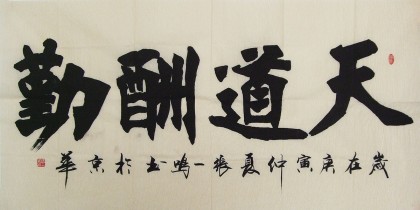 天道酬勤
歲在庚寅仲夏張一鳴書於京華